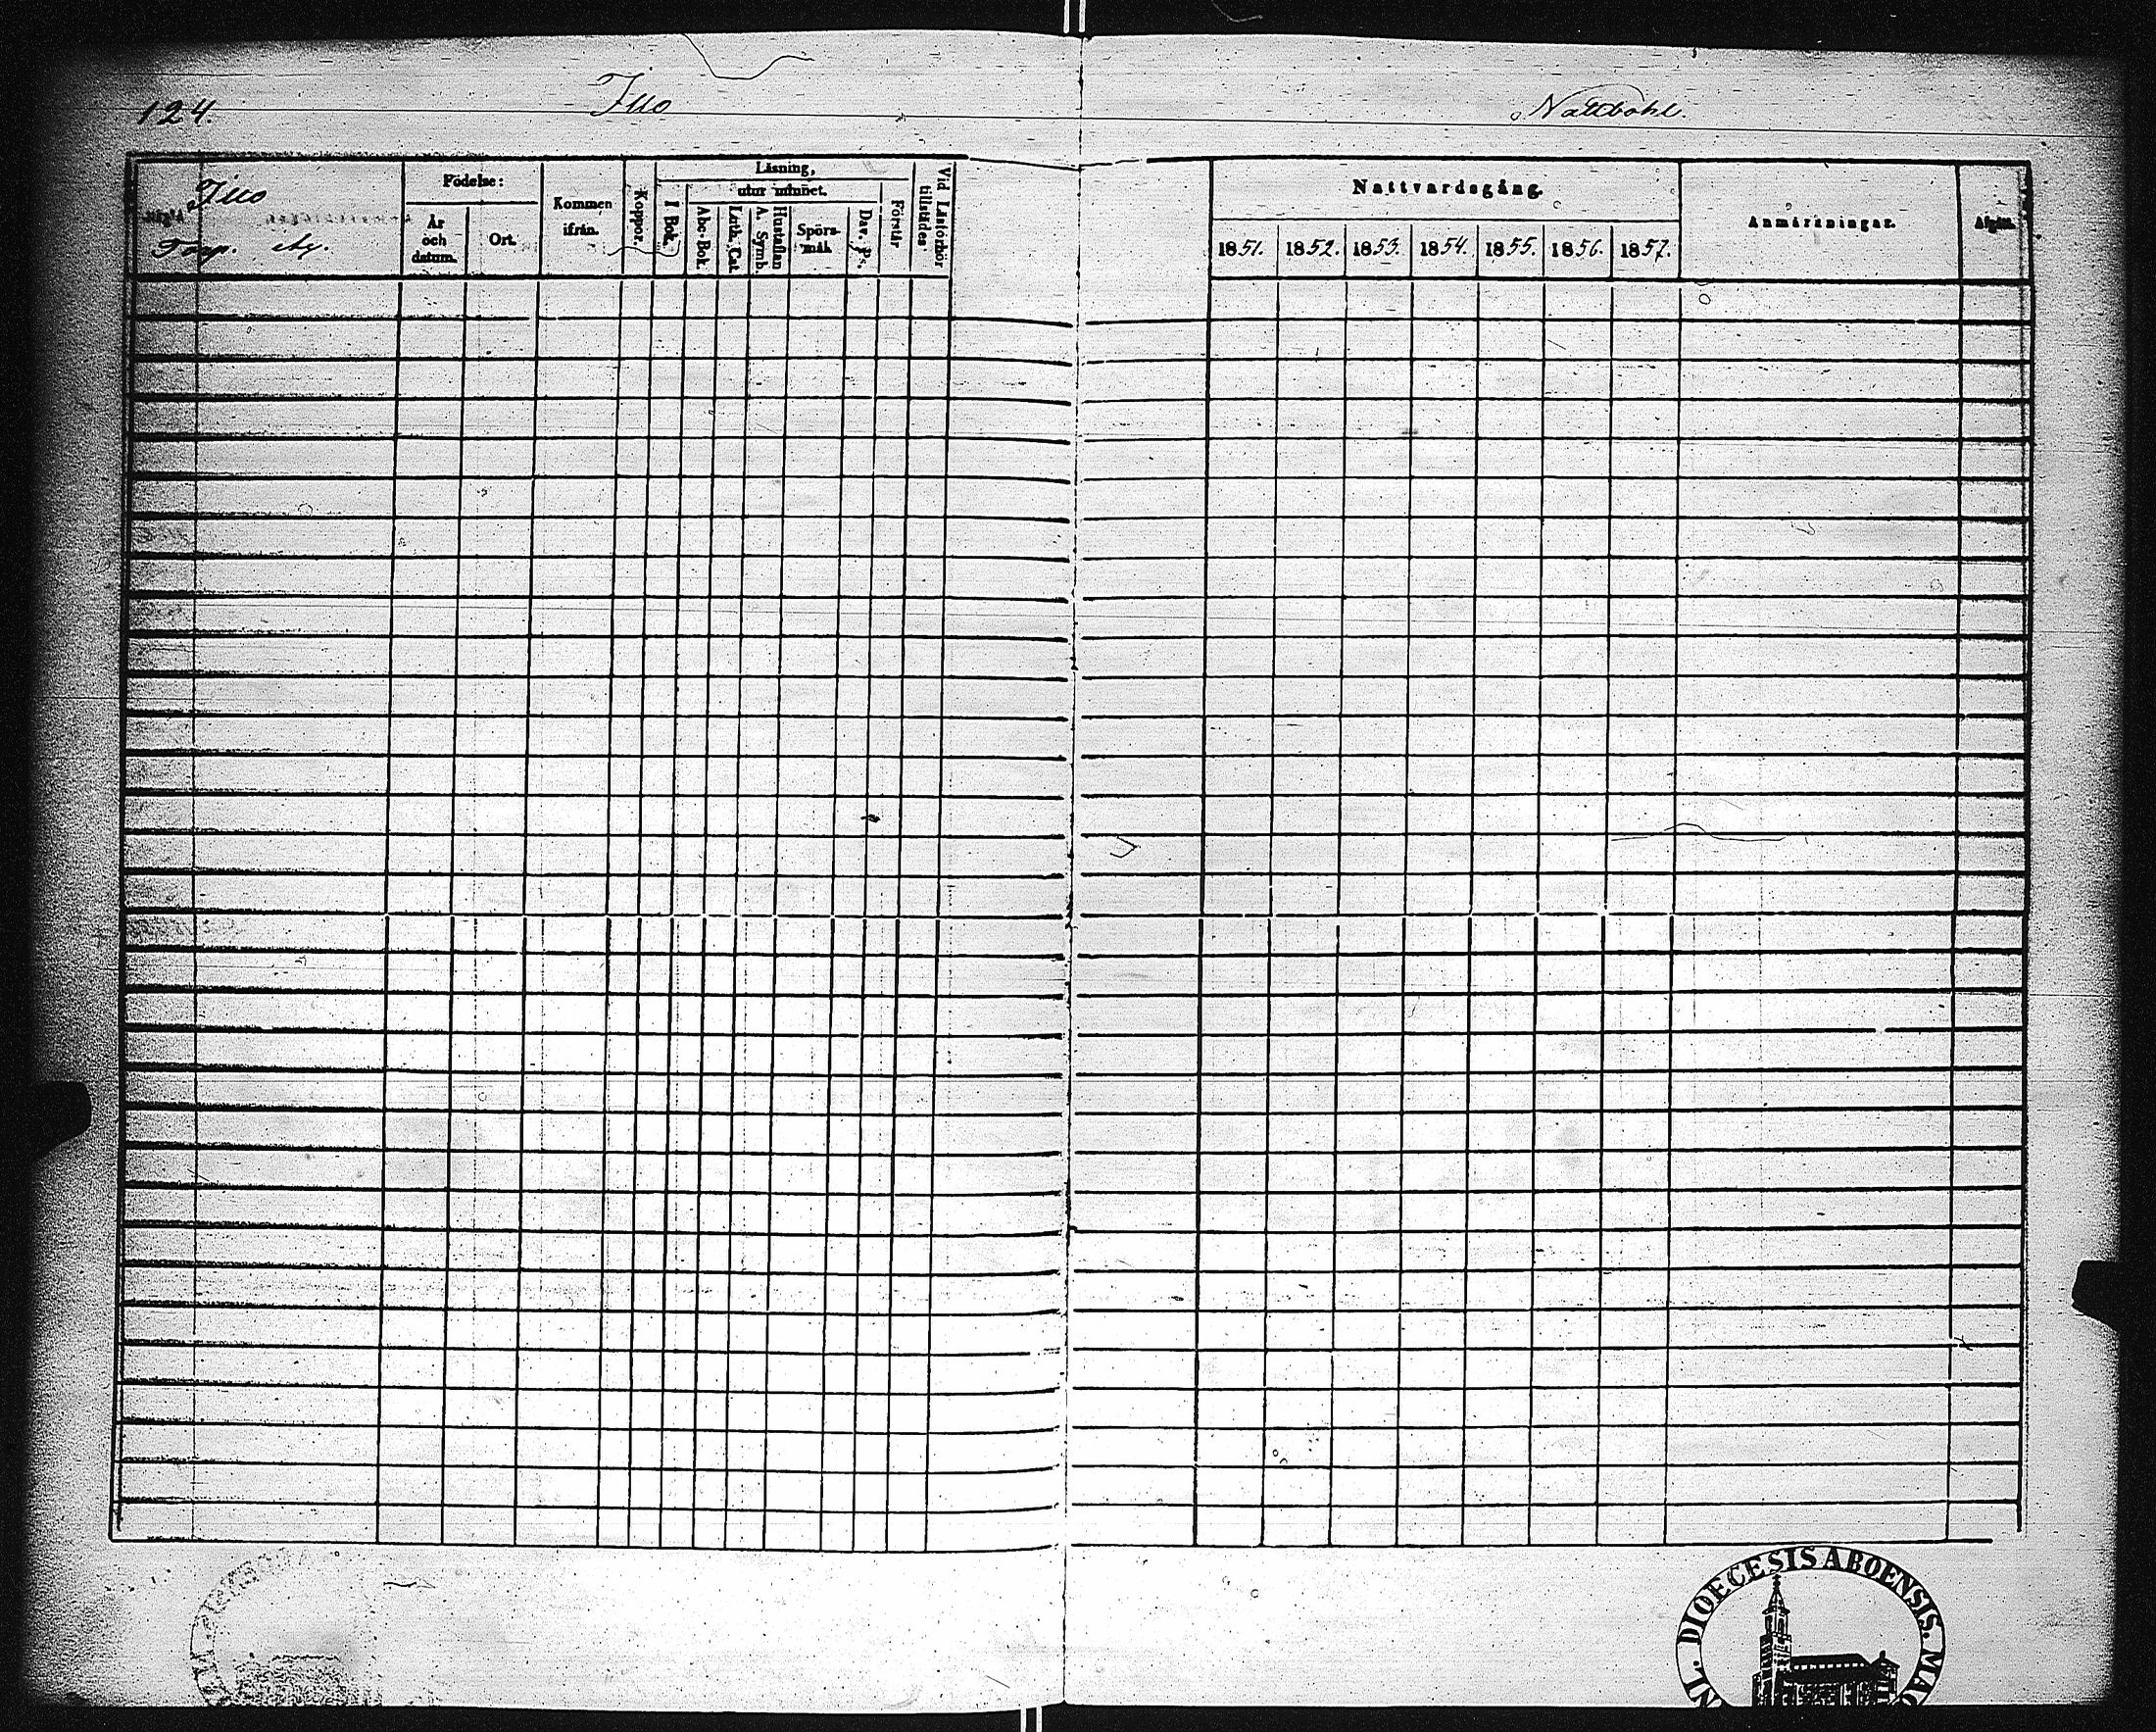 124.
Iuo
Nattbohl.
Iuo
Torp.
Födelse:
År
och
datum.
Ort.
Kommen
ifrån.
Koppor.
Läsning,
utur minnet.
I Bok.
Abc-Bok.
Luth. Cat.
Hustaflan
A. Symb.
Spörs-
mål.
Dav. Ps.
Förstår
Vid Läsförhör
tillstädes
Nattvardsgång.
1851. 1852. 1853. 1854. 1855. 1856. 1857.
Anmärkningar.
DIOECESIS ABOENSIS.